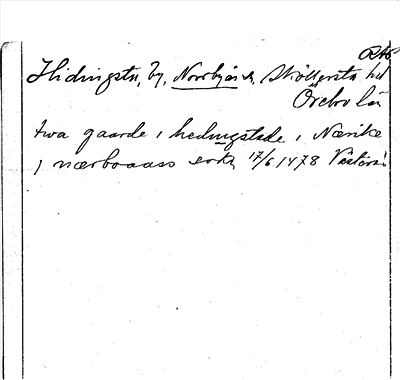 RAP
Hidingsta, by, Norrbyås sn, Sköllersta hd
Örebro län
twa gaarde i hedingstade i Nærike
i nærboaass sokn 17/6 1478 Västerås